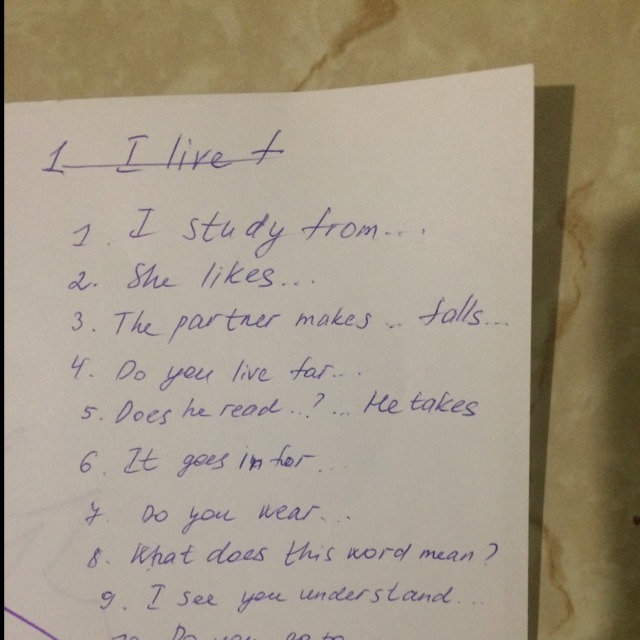 1 I live f
1. I study from...
2. She likes...
3. The partner makes .. falls...
4. Do you live far...
5. Does he read ..? ... He takes
6. It goes in for...
7. Do you wear...
8. What does this word mean?
9. I see you understand...
10. Do you go to